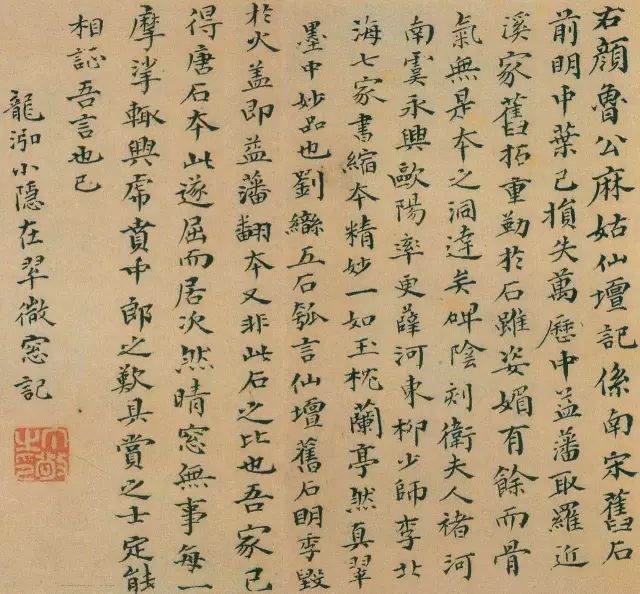 右顔魯公麻姑仙壇記係南宋舊石
前明中葉已損失萬厯中益藩取羅近
溪家舊拓重勒於石雖姿媚有餘而骨
氣無是本之洞達矣碑陰刻衛夫人褚河
南虞永興歐陽率更薛河東柳少師李北
海七家書縮本精妙一如玉枕蘭亭然真翠
墨中妙品也劉巒五石瓠言仙壇舊石明季毀
於火蓋即益藩翻本又非此石之比也吾家已
得唐石本此遂屈而居次然晴窓無事每一
摩挲輒興虎賁中郎之歎具賞之士定能
相誌吾言也已
龍泓小隱在翠微窓記